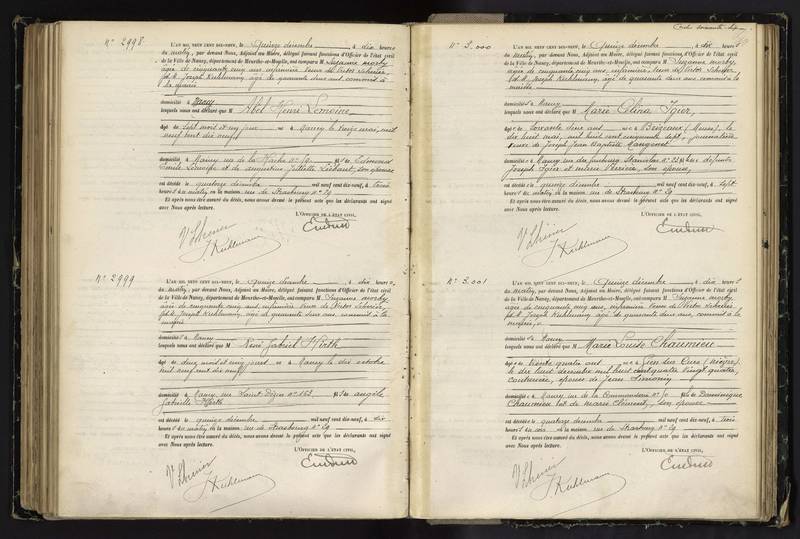 N° 2998
L'AN MIL NEUF CENT DIX-NEUF, le Quinze décembre, à dix heures
du matin, par devant Nous, Adjoint au Maire, délégué faisant fonctions d'Officier de l'état civil
de la Ville de Nancy, département de Meurthe-et-Moselle, ont comparu M. Suzanne
âgée de cinquante cinq ans, infirmière, veuve de Victor
et M. Joseph Kuhlmann, âgé de quarante deux ans, commis à
la mairie
domiciliés à Nancy
lesquels nous ont déclaré que M Abel Henri Lemoine
âgé de sept mois et un jour né à Nancy le treize mai mil
neuf cent dix neuf
domicilié à Nancy rue de la Hache n° fils de Edmond
Emile et de Augustine Juliette son épouse
est décédé le quatorze décembre mil neuf cent dix-neuf, à trois
heures du matin, en la maison rue de Strasbourg n° 29
Et après nous être assuré du décès, nous avons dressé le présent acte que les déclarants ont signé
avec Nous après lecture.
L'OFFICIER DE L'ÉTAT CIVIL,
J. Kuhlmann
N° 2999
L'AN MIL NEUF CENT DIX-NEUF, le Quinze décembre, à dix heures
du matin, par devant Nous, Adjoint au Maire, délégué faisant fonctions d'Officier de l'état civil
de la Ville de Nancy, département de Meurthe-et-Moselle, ont comparu M. Suzanne
âgée de cinquante cinq ans, infirmière, veuve de Victor
et M. Joseph Kuhlmann, âgé de quarante deux ans, commis à la
mairie
domiciliés à Nancy
lesquels nous ont déclaré que M René Gabriel Hirth
âgé de deux mois et cinq jours né à Nancy le dix octobre
mil neuf cent dix neuf
domicilié à Nancy rue Saint Dizier n° 153 fils de Angèle
Gabrielle Hirth
est décédé le quinze décembre mil neuf cent dix-neuf, à dix
heures du matin, en la maison rue de Strasbourg n° 29
Et après nous être assuré du décès, nous avons dressé le présent acte que les déclarants ont signé
avec Nous après lecture.
L'OFFICIER DE L'ÉTAT CIVIL,
J. Kuhlmann
N° 3.000
L'AN MIL NEUF CENT DIX-NEUF, le Quinze décembre, à dix heures
du matin, par devant Nous, Adjoint au Maire, délégué faisant fonctions d'Officier de l'état civil
de la Ville de Nancy, département de Meurthe-et-Moselle, ont comparu M. Suzanne
âgée de cinquante cinq ans, infirmière, veuve de Victor
et M. Joseph Kuhlmann, âgé de quarante deux ans, commis à la
mairie
domiciliés à Nancy
lesquels nous ont déclaré que M Marie Célina Igier
âgée de soixante deux ans née à Brizeaux (Meuse), le
dix huit mai mil huit cent cinquante sept, journalière
veuve de Joseph Jean Baptiste Mangenot
domiciliée à Nancy rue du faubourg Stanislas n° 22 fille de défunts
Joseph Igier et Marie son épouse,
est décédée le quinze décembre mil neuf cent dix-neuf, à sept
heures du matin, en la maison rue de Strasbourg n° 29
Et après nous être assuré du décès, nous avons dressé le présent acte que les déclarants ont signé
avec Nous après lecture.
L'OFFICIER DE L'ÉTAT CIVIL,
J. Kuhlmann
N° 3.001
L'AN MIL NEUF CENT DIX-NEUF, le Quinze décembre, à dix heures
du matin, par devant Nous, Adjoint au Maire, délégué faisant fonctions d'Officier de l'état civil
de la Ville de Nancy, département de Meurthe-et-Moselle, ont comparu M. Suzanne
âgée de cinquante cinq ans, infirmière, veuve de Victor
et M. Joseph Kuhlmann, âgé de quarante deux ans, commis à la
mairie
domiciliés à Nancy
lesquels nous ont déclaré que M Marie Louise Chaumieu
âgée de trente quatre ans née à (Nièvre)
le dix huit décembre mil huit cent quatre vingt quatre,
couturière, épouse de Jean
domiciliée à Nancy rue de la Commanderie n° fille de Dominique
Chaumieu et de Marie son épouse
est décédée le quatorze décembre mil neuf cent dix-neuf, à trois
heures du soir en la maison rue de Strasbourg n° 29
Et après nous être assuré du décès, nous avons dressé le présent acte que les déclarants ont signé
avec Nous après lecture.
L'OFFICIER DE L'ÉTAT CIVIL,
J. Kuhlmann